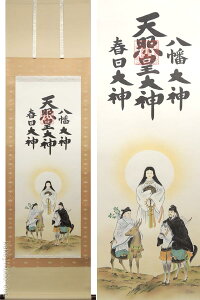 八幡大神
天照皇大神
春日大神
八幡大神
天照皇大神
春日大神